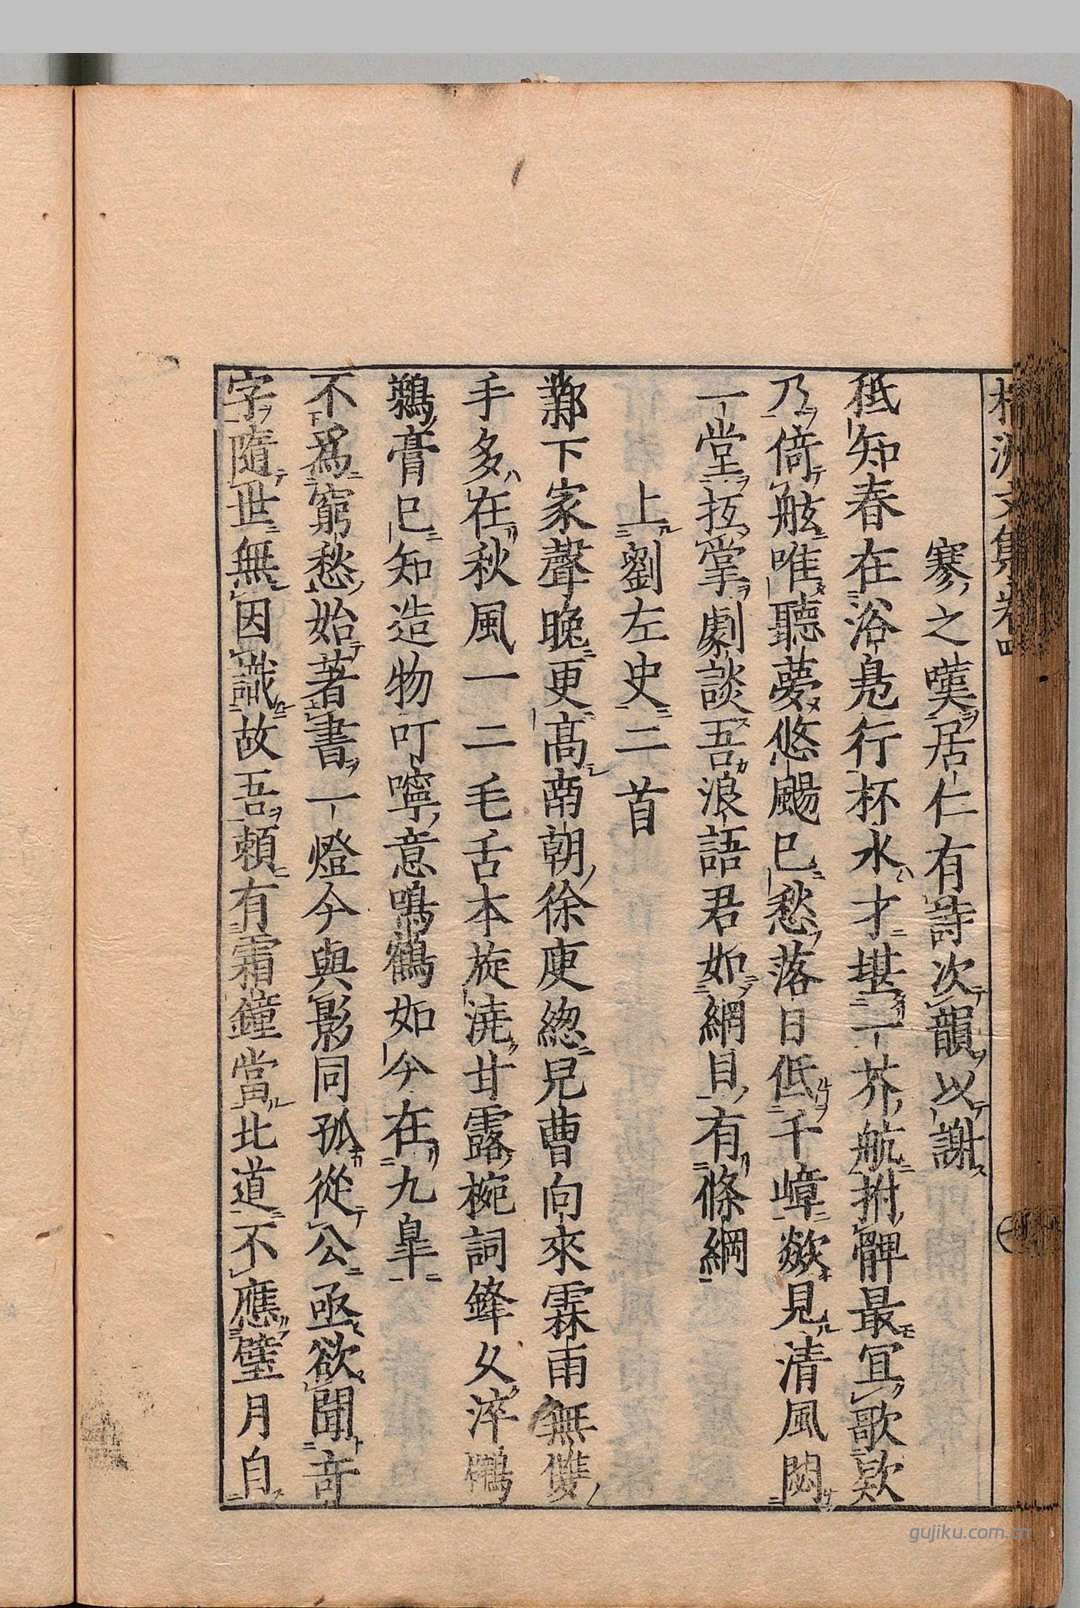 文集卷四
寥之嘆居仁有詩次韻以謝
秪知春在浴鳧行杯水才堪一芥航拊髀最宜歌欵
乃倚舷唯聽夢悠颺巳愁落日低千嶂歘見清風閟
一堂抵掌劇談吾浪語君如網目有條綱
上劉左史二首
鄴下家聲晚更高南朝徐庾緫兒曹向來霖雨無雙
手多在秋風一二毛舌本旋澆甘露椀詞鋒乆淬鸊
鵜膏巳知造物叮嚀意鳴鶴如今在九皐
不爲窮愁始著書一燈今與影同孤從公亟欲聞竒
字隨世無因識故吾頼有霜鐘當北道不應璧月自
gujiku.com.cn